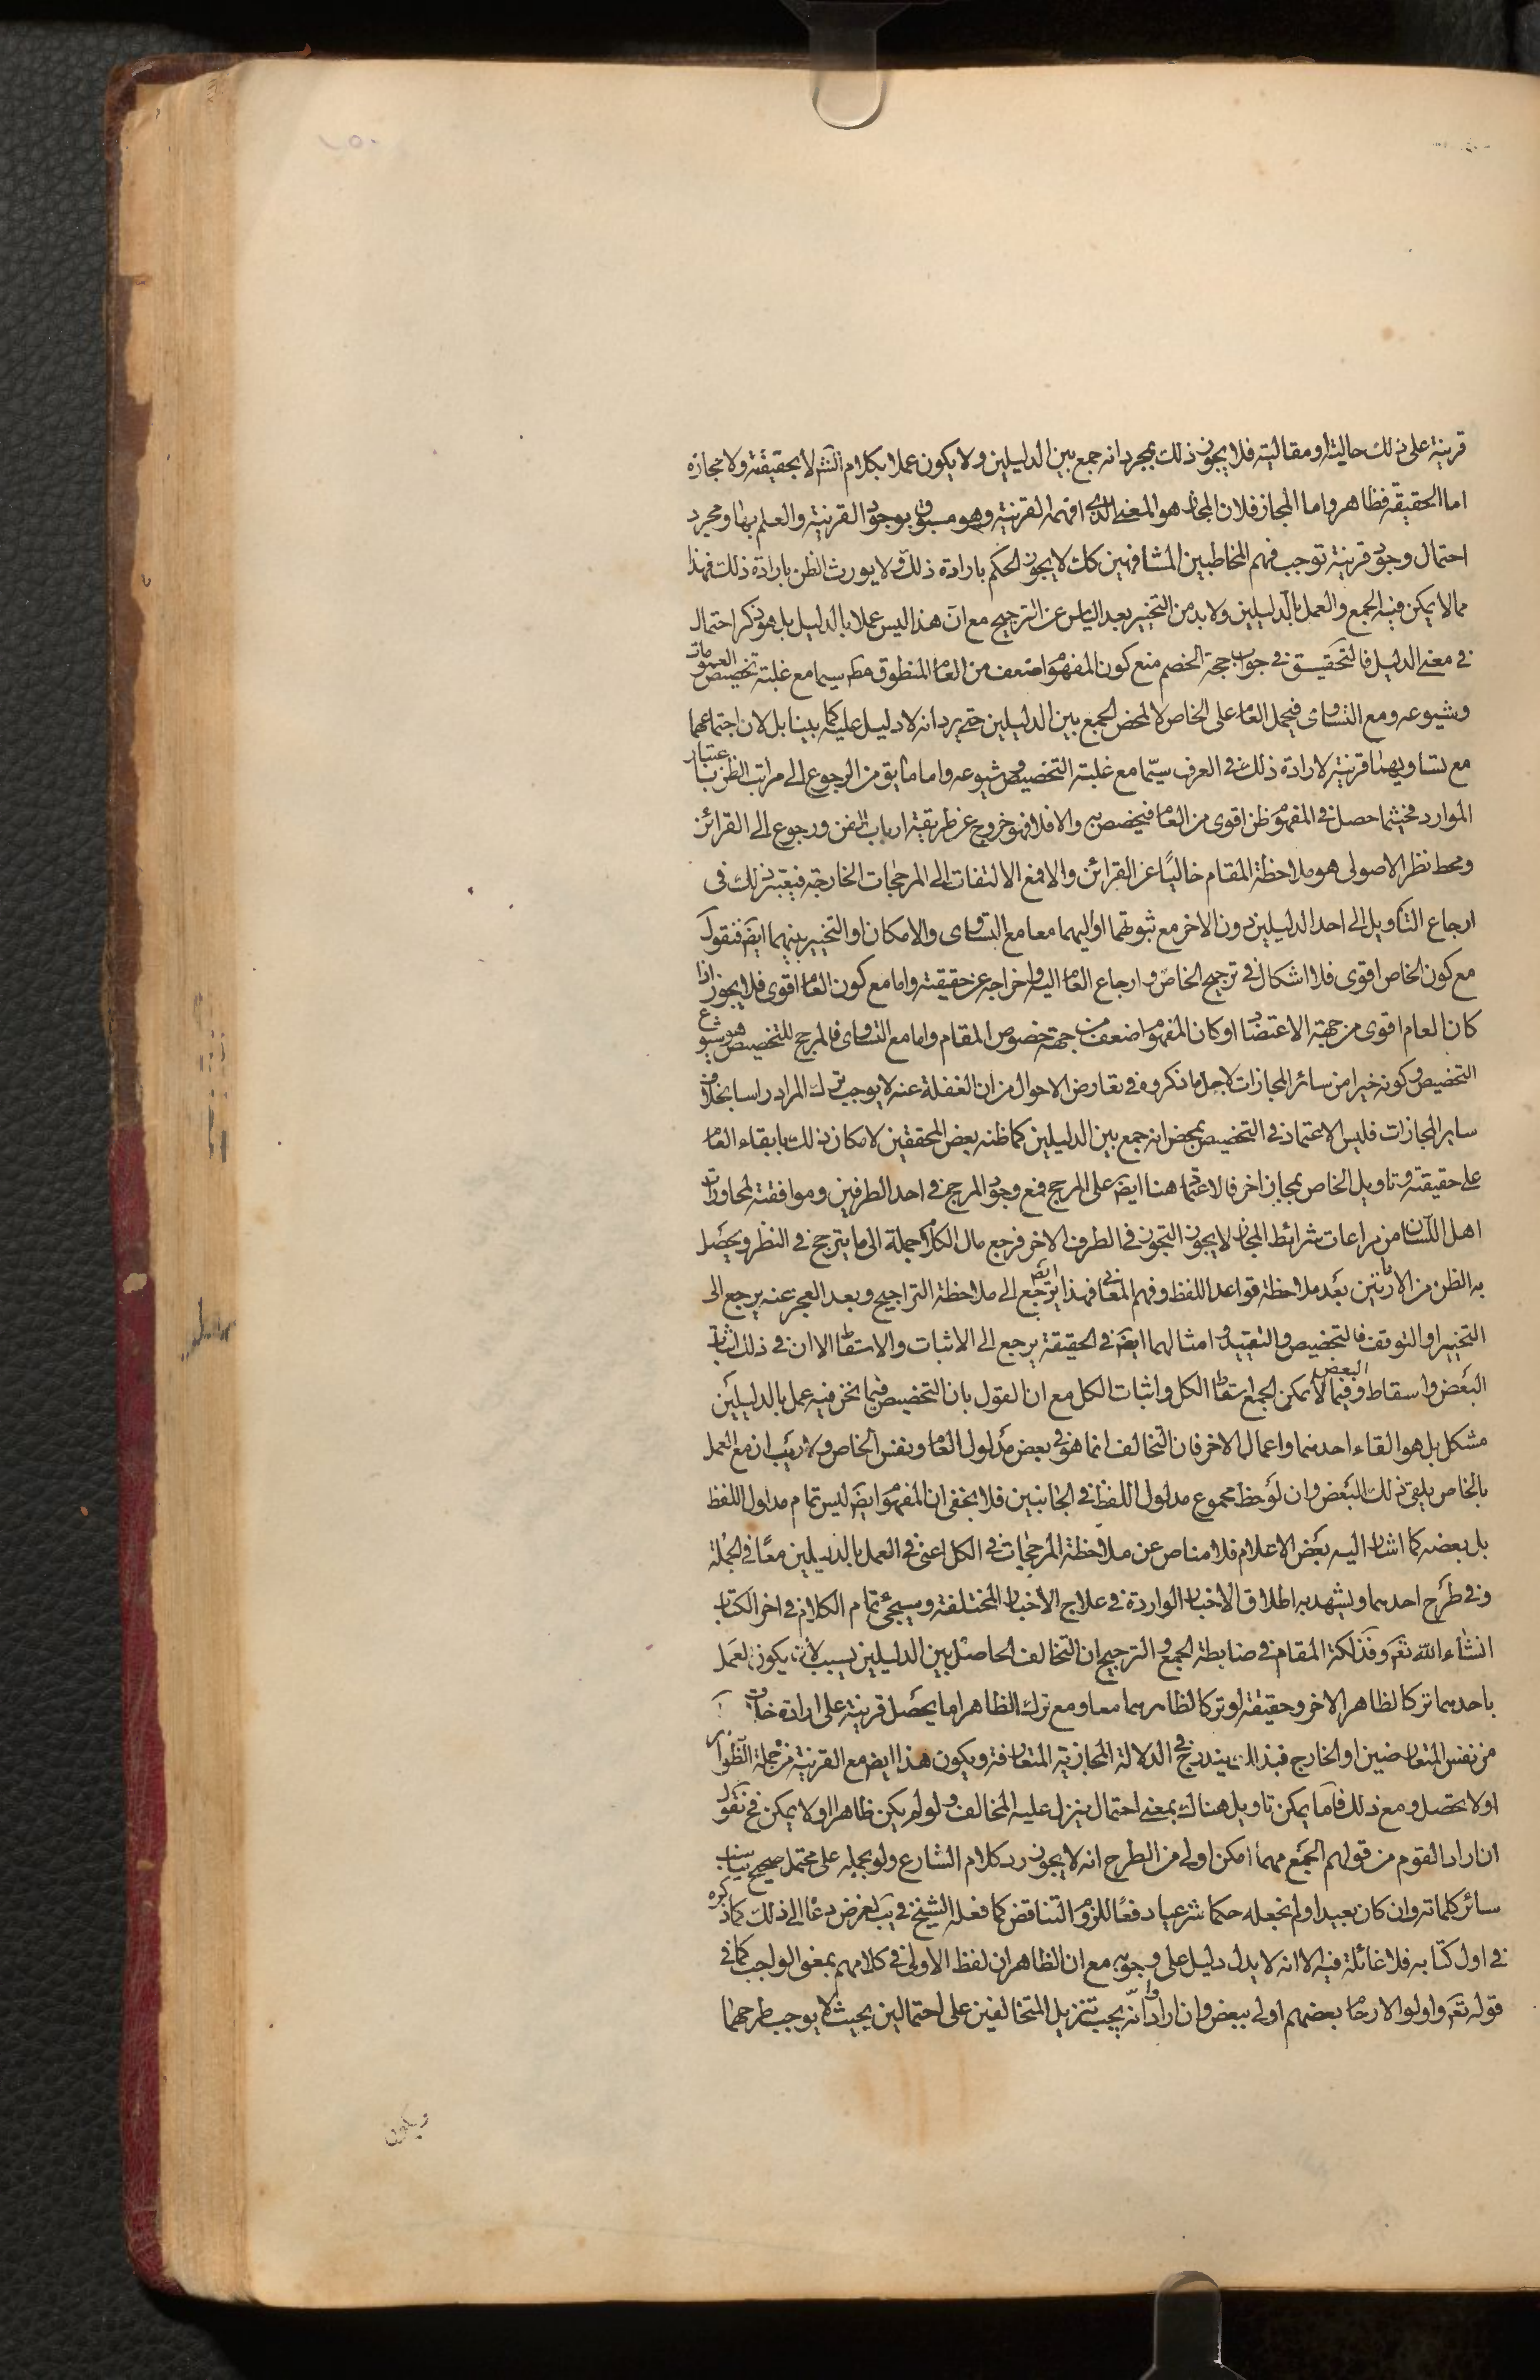 قرينة على ذلك حالية او مقالية فلا يجوز ذلك بمجرد انه جمع بين الدليلين ولا يكون عملا بكلام الش لا بحقيقته ولا مجازه
اما الحقيقة فظاهر واما المجاز فلان المجاز هو المعنى الذى افهمه القرينة وهو مسبوق بوجود القرينة والعلم بها ومجرد
احتمال وجود قرينة توجب فهم المخاطبين المشافهين كك لا يجوز الحكم بارادة ذلك ولا يورث الظن بارادة ذلك فهذا
مما لا يمكن فيه الجمع والعمل بالدليلين ولا بد من التخيير بعد الياس عن الترجيح مع ان هذا ليس عملا بالدليل بل هو ذكر احتمال
فى معنى الدليل فالتحقيق فى جواب حجة الخصم منع كون المفهوم اضعف من العام المنطوق مط سيما مع غلبة تخصيص العمومات
وشيوعه ومع التساوى فيحمل العام على الخاص لا لمحض الجمع بين الدليلين حتى يرد انه لا دليل عليه كما بينا بل لان اجتماعهما
مع تساويهما قرينة لارادة ذلك فى العرف سيّما مع غلبة التخصيص وشيوعه واما ما يق من الرجوع الى مراتب الظن باعتبار
الموارد فحيثما حصل فى المفهوم ظن اقوى من العام فيخصص به والا فلا فهو خروج عن طريقة ارباب الفن ورجوع الى القرائن
ومحط نظر الاصولى هو ملاحظة المقام خاليًا عن القرائن والا فمع الالتفات الى المرجحات الخارجة فيعتبر ذلك فى
ارجاع التاويل الى احد الدليلين دون الاخر مع ثبوتهما او اليهما معا مع التساوى والامكان او التخيير بينهما ايض فنقول
مع كون الخاص اقوى فلا اشكال فى ترجيح الخاص وارجاع العام اليه واخراجه عن حقيقته واما مع كون العام اقوى فلا يجوز اذا
كان العام اقوى من جهة الاعتضاد او كان المفهوم اضعف من جهة خصوص المقام واما مع التساوى فالمرجح للتخصيص هو شيوع
التخصيص وكونه خيرا من سائر المجازات لاجل ما ذكروه فى تعارض الاحوال من ان الغفلة عنه لا يوجب ترك المراد راسا بخلاف
ساير المجازات فليس الاعتماد فى التخصيص بمحض انه جمع بين الدليلين كما ظنه بعض المحققين لامكان ذلك بابقاء العام
على حقيقته وتاويل الخاص بمجاز اخر فالاعتماد هنا ايض على المرجح فمع وجود المرجح فى احد الطرفين وموافقته لمحاورات
اهل اللسان من مراعات شرائط المجاز لا يجوز التجوز فى الطرف الاخر فرجع مال الكلام جملة الى ما يترجح فى النظر ويحصل
به الظن من الامارتين بعد ملاحظة قواعد اللفظ وفهم المعانى فهذا ايض يرجع الى ملاحظة التراجيح وبعد العجز عنه يرجع الى
التخيير او التوقف فالتخصيص والتقييد وامثالهما ايض فى الحقيقة يرجع الى الاثبات والاسقاط الا ان فى ذلك اثبات
البعض واسقاط البعض وفيما لا يمكن الجمع اسقاط الكل واثبات الكل مع ان القول بان التخصيص فيما نحن فيه عمل بالدليلين
مشكل بل هو القاء احدهما واعمال الاخر فان التخالف انما هو فى بعض مدلول العام ونفس الخاص ولا ريب ان مع العمل
بالخاص يلقى ذلك البعض وان لوحظ مجموع مدلول اللفظ فى الجانبين فلا يخفى ان المفهوم ايض ليس تمام مدلول اللفظ
بل بعضه كما اشار اليه بعض الاعلام فلا مناص عن ملاحظة المرجحات فى الكل اعنى فى العمل بالدليلين معًا فى الجملة
وفى طرح احدهما ويشهد به اطلاق الاخبار الواردة فى علاج الاخبار المختلفة وسيجئ تمام الكلام فى اخر الكتاب
انشاء الله تع وفذلكة المقام فى ضابطة الجمع والترجيح ان التخالف الحاصل بين الدليلين بسبب ان يكون العمل
باحدهما تركا لظاهر الاخر وحقيقته او تركا لظاهرهما معا ومع ترك الظاهر اما يحصل قرينة على ارادة خلاف
من نفس المتعارضين او الخارج فبذلك يندرج فى الدلالة المجازية المتعارفة ويكون هذا ايض مع القرينة من جملة الظواهر
او لا يحصل ومع ذلك فاما يمكن تاويل هناك بمعنى احتمال ينزل عليه المخالف ولو لم يكن ظاهرا او لا يمكن فح نقول
ان اراد القوم من قولهم الجمع مهما امكن اولى من الطرح انه لا يجوز رد كلام الشارع ولو بحمله على محتمل صحيح يناسب
سائر كلماته وان كان بعيدا ولم نجعله حكما شرعيا دفعًا للزوم التناقض كما فعله الشيخ فى يب لغرض دعاه الى ذلك كما ذكره
فى اول كتابه فلا غائلة فيه الا انه لا يدل دليل على وجوبه مع ان الظاهر ان لفظ الاولى فى كلامهم بمعنى الواجب كما فى
قوله تع واولوا الارحام بعضهم اولى ببعض وان ارادوا انه يجب تنزيل المتخالفين على احتمالين بحيث لا يوجب طرحهما
فيكون